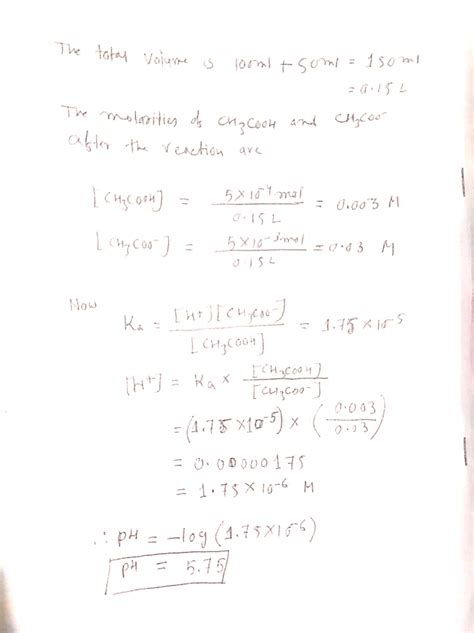 The total volume is 100ml + 50ml = 150 ml
= 0.15 L
The molarities of CH3COOH and CH3COO-
after the reaction are
[CH3COOH] = 5×10-4 mol / 0.15 L = 0.003 M
[CH3COO-] = 5×10-3 mol / 0.15 L = 0.03 M
Now
Ka = [H+][CH3COO-] / [CH3COOH] = 1.75 × 10-5
[H+] = Ka × [CH3COOH] / [CH3COO-]
= (1.75 ×10-5) × (0.003 / 0.03)
= 0.00000175
= 1.75 × 10-6 M
∴ pH = -log (1.75×10-6)
pH = 5.75